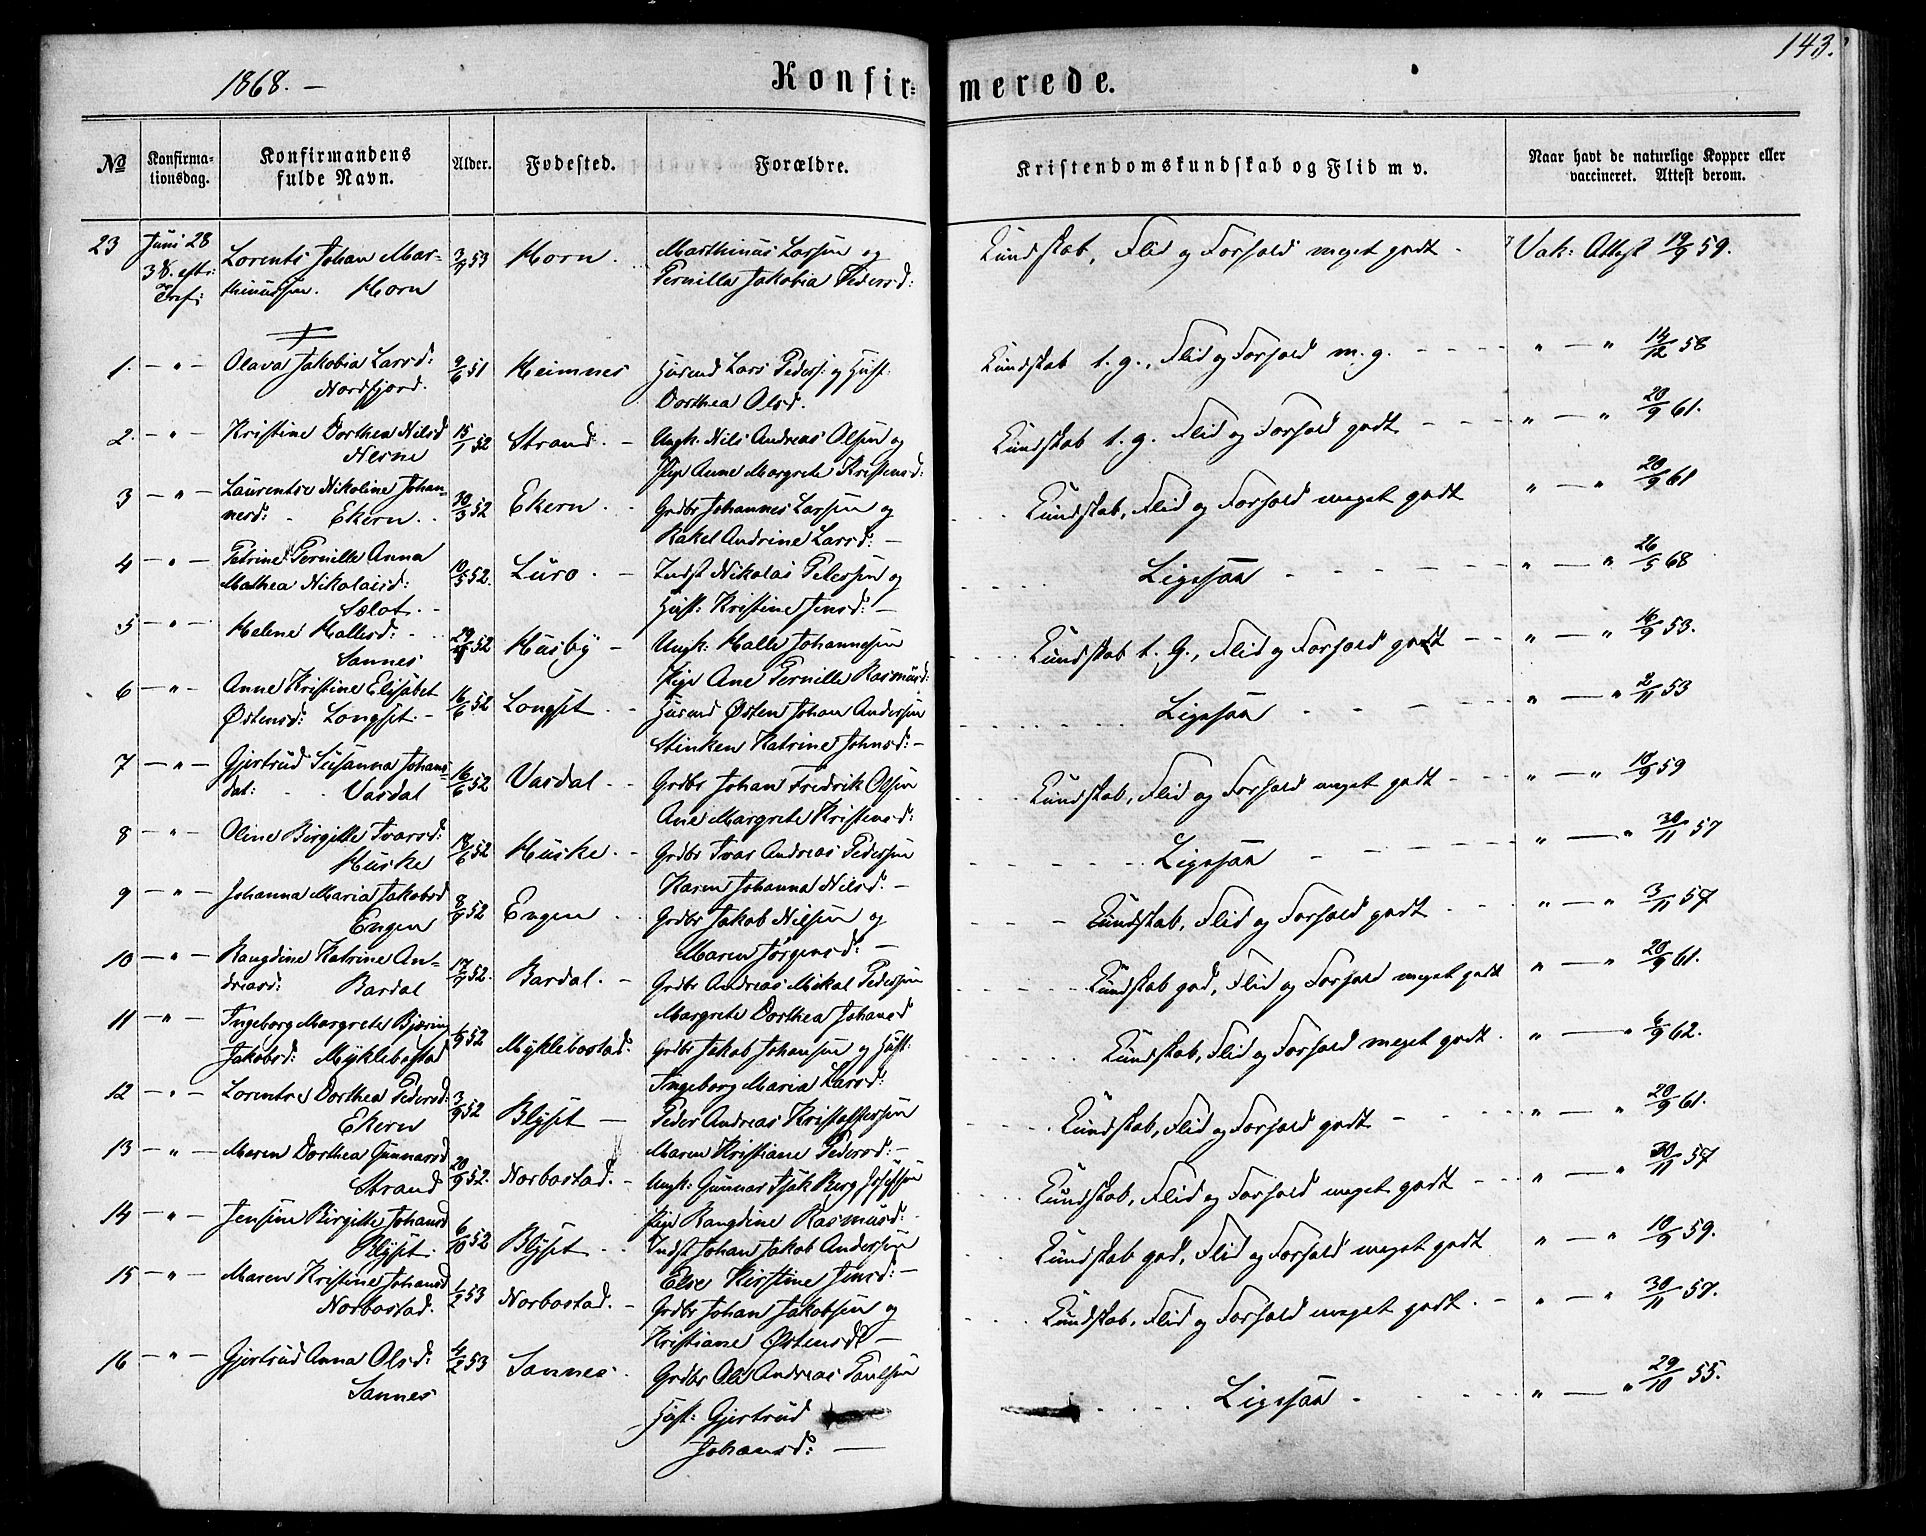 143.
1868. —
Konfir= merede.
No
Konfirma-
tionsdag.
Konfirmandens
fulde Navn.
Alder.
Fødested.
Forældre.
Kristendomskundskab og Flid m v.
Naar havt de naturlige Kopper eller
vaccineret. Attest derom.
23 Juni 28 Lorents Johan Mar- 53 Horn. Marthinus Larsen og Kundskab, Flid og Forhold meget godt - Vak: Attest 19/9 59.
3 S. eftr: thinussen. Horn Pernilla Jakobia Pedersd:
Tref:
1. — " — Olava Jakobia Larsd: 9/6 51 Heimnes Husmd Lars Peders: og Hust: Kundskab t. g., Flid og Forhold m. g. " — " 14/12 58
Nordfjord. Dorthea Olsd.
2. — " — Kristine Dorthea Nilsd 15/1 52 Strand. — Ungk: Nils Andreas Olsen og Kundskab t. g. Flid og Forhold godt " — " 20/9 61.
Nesne Pige Anne Margrete Kristensd:
3 — " — Laurentse Nikoline Johan- 30/3 52 Ekern. Grdbr Johannes Larsen og Kundskab, Flid og Forhold meget godt " — " 20/9 61
nesd: - Ekern. Rakel Andrine Larsd: —
4 — " — Petrine Pernille Anna 10/5 52. Lurø. — Indst Nikolai Petersen og Ligesaa " — " 26/5 68
Mathea Nikolaisd: Hust: Kristine Jensd: —
Selot. -
5 — " — Helene Hallesd: 52 Husby — Ungk: Halle Johannesen Kundskab t. G., Flid og Forhold godt " — " 14/9 53.
Sannes Pige Ane Pernille Rasmusd:
6 — " — Anne Kristine Elisabet 16/6 52 Longset. Husmd Østen Johan Andersen Ligesaa " — " 2/11 53
Østensd: Longset. - Stinken Katrine Johnsd: —
7 — " — Gjertrud Susanna Johans- 16/6 52 Vasdal. Grdbr Johan Fredrik Olsen Kundskab, Flid og Forhold meget godt " — " 10/9 59
dat: Vasdal Ane Margrete Kristensd:
8 — " — Oline Birgitte Ivarsd: 52 Huske. Grdbr Ivar Andreas Pedersen Ligesaa " — " 30/11 57
Huske Karen Johanna Nilsd: —
9 — " — Johanna Maria Jakobsd 52 Engen Grdbr Jakob Nilsen og Kundskab, Flid og Forhold godt " — " 3/11 57
Engen Maren Jørgensd: —
10 — " — Rangdine Katrine An- 52. Bardal. — Grdbr Andreas Mikal Pedersen Kundskab god, Flid og Forhold meget godt " — " 20/9 61.
dreasd: Bardal Margrete Dorthea Johansd
11 — " — Ingeborg Margrete Bjæring 52 Myklebostad. Grdbr Jakob Johansen og Hust: Kundskab, Flid og Forhold meget godt. " — " 6/9 62.
Jakobsd: Myklebostad Ingeborg Maria Larsd:
12 — " — Lorentse Dorthea Pedersd: 3/9 52 Blyset — Peder Andreas Kristoffersen Kundskab, Flid og Forhold godt " — " 20/9 61.
Ekern Maren Kristiane Pedersd: —
13 — " — Maren Dorthea Gunnarsd 20/9 52. Norbostad. — Ungk: Gunnar Isak Berg Josefsen Kundskab, Flid og Forhold meget godt " — " 30/11 57
Strand Pige Rangdine Rasmusd:
14 — " — Jensine Birgitte Johansd 6/10 52 Blyset. Indst Johan Jakob Andersen Kundskab god, Flid og Forhold meget godt " — " 10/9 59.
Blyset. Else Kirstine Jensd: —
15 — " — Maren Kristine Johansd 1/2 53 Norbostad. — Grdbr Johan Jakobsen og Kundskab, Flid og Forhold meget godt. " — " 30/11 57.
Norbostad. Kristiane Østensd —
16 — " — Gjertrud Anna Olsd: 4/2 53 Sannes. Grdbr Ole Andreas Paulsen Ligesaa " — " 29/10 55.
Sannes Hust: Gjertrud
Johansd: —